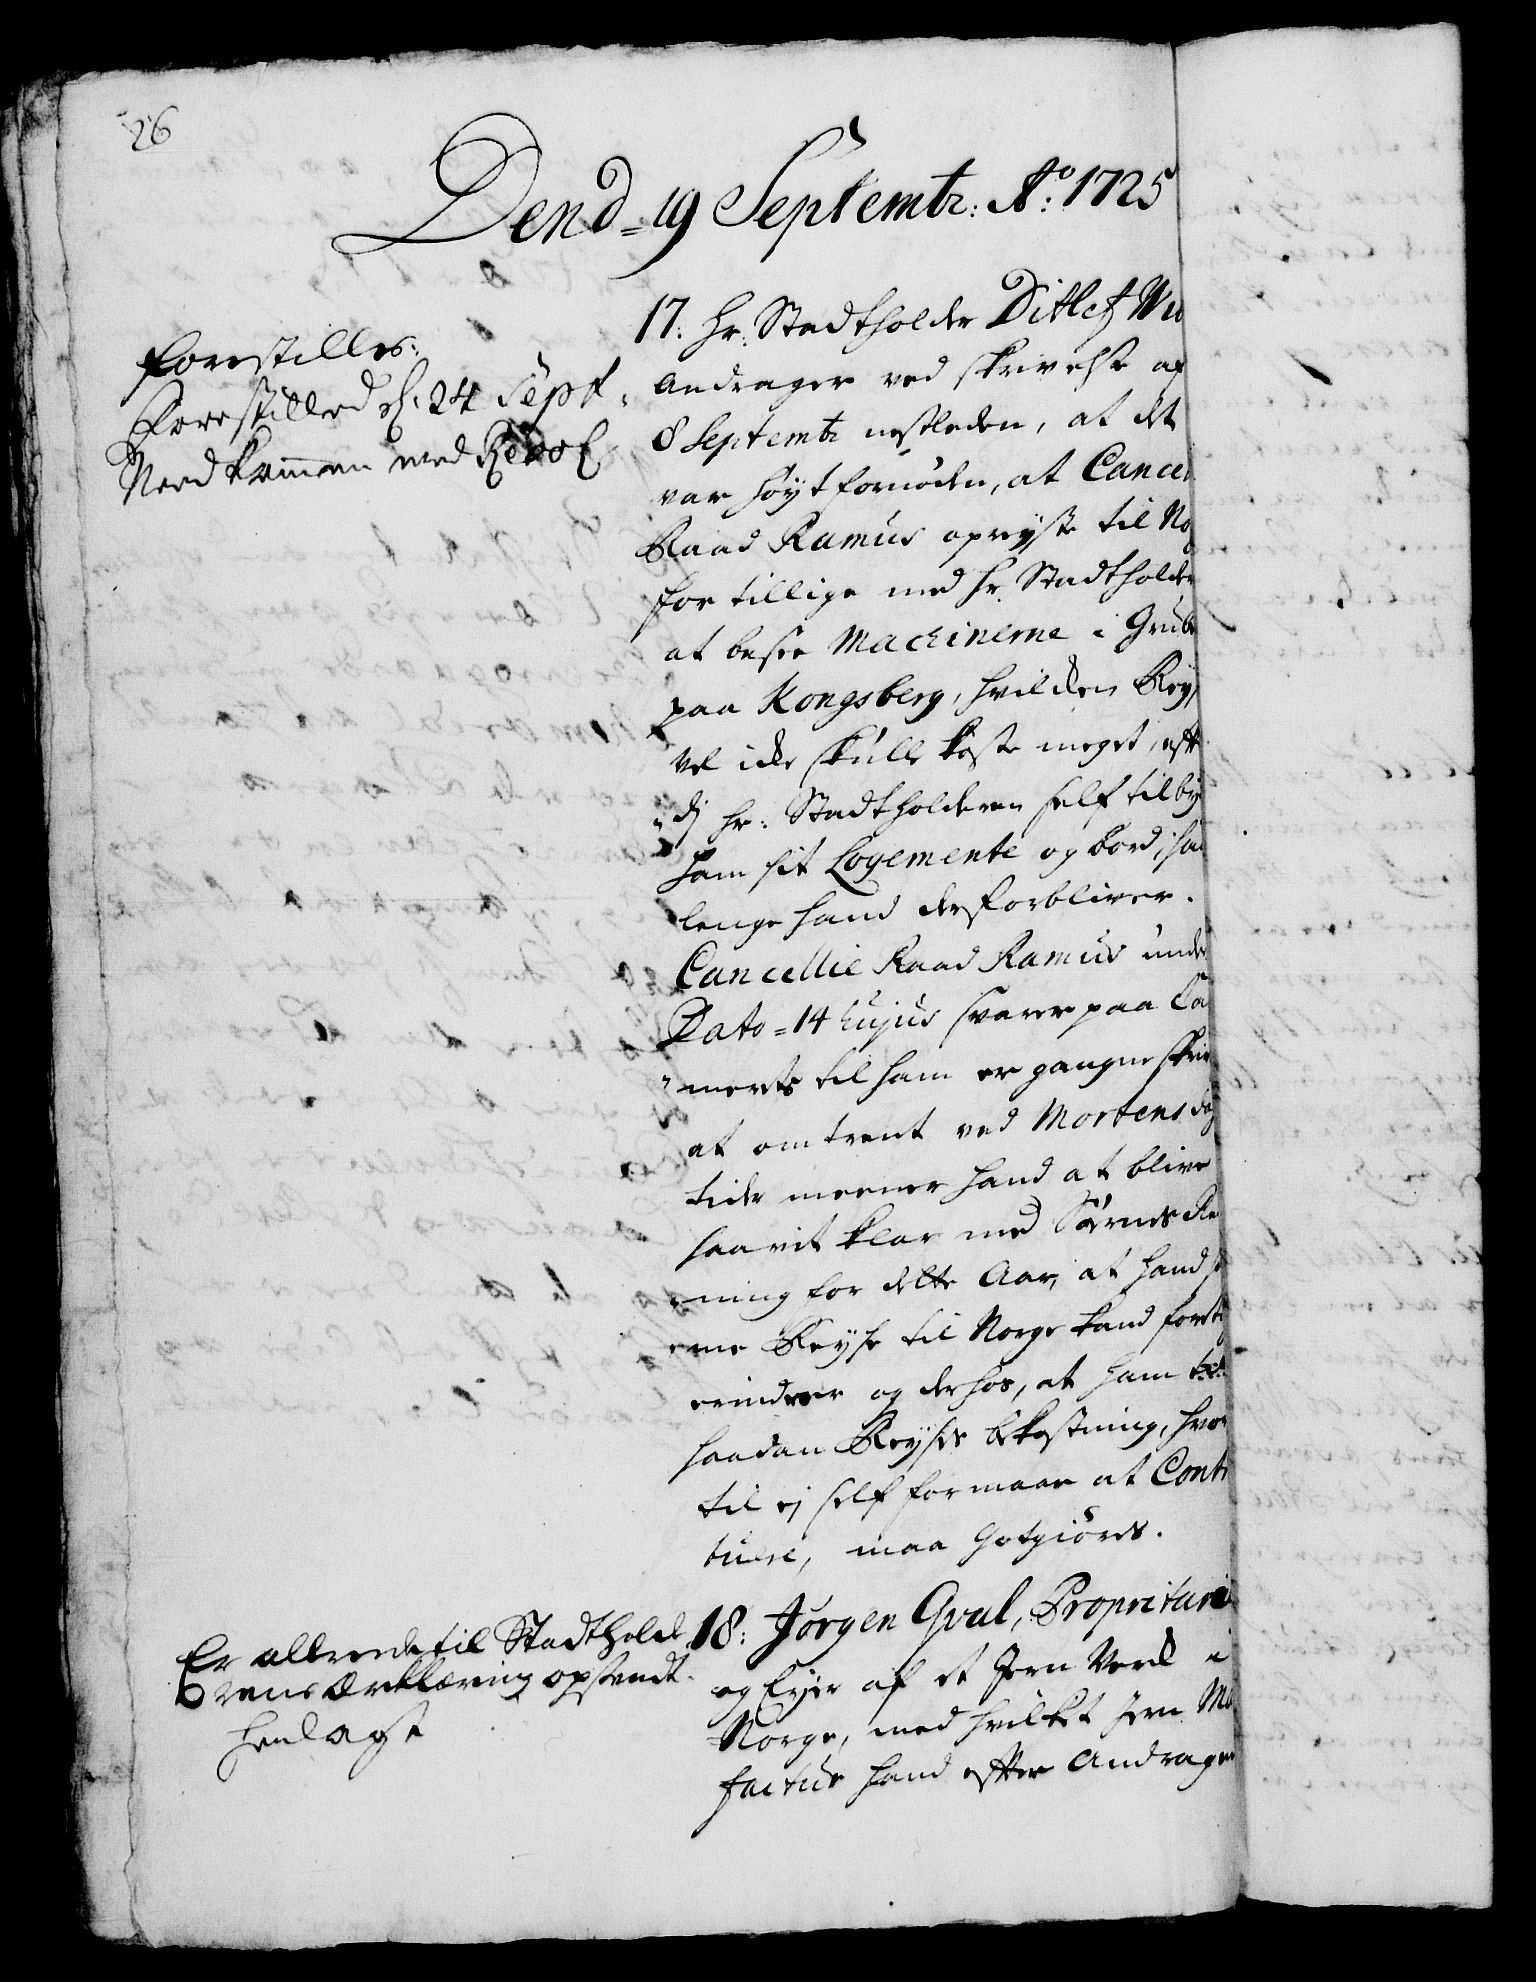 26
Dend = 19 Septembr: Ao: 1725
Forestilles:
Forestilled d: 24 Sept:
Needkommen med Resol
17: Hr: Stadtholder Ditlef Wi
Andrager ved skrivelse af
8 Septembr nestleden, at det
var høyt fornøden, at Cancel
Raad Ramus opreyste til No
for tillige med Hr. Stadtholder
at besee Machinerne i Grube
paa Kongsberg, hvilcken Rey
vel icke skulle koste meget, eft
„di Hr: Stadtholderen self tilby
ham sit Logemente og bord, saa
lenge hand der forbliver.
Cancellie Raad Ramus under
Dato = 14 hujus svarer paa Ca
„merets til ham ergangne skriv
at omtrent ved Mortens dag
tider meener hand at blive
saavit klar med Søernes Re
„ning for dette Aar, at hand
„ne Reyse til Norge kand fort
erindrer og derhos, at ham
saadan Reyses bekostning, hvor
til ej self formaar at Cont
tuere, maa Gotgiøres.
Er allerede til Stadtholde
rens Ærklæring opsendt.
Henlagt
18: Jørgen Gval, Propritari
og Ejer af et Jern Verck i
Norge, med hvilcket Jern Ma
factur hand efter Andrage